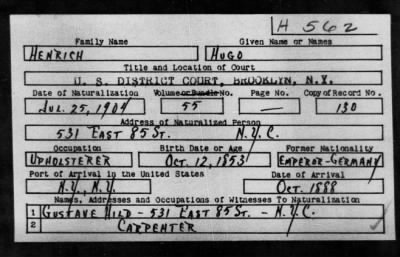 H 562
Family Name Given Name or Names
HENRICH HUGO
Title and Location of Court
U. S. DISTRICT COURT, BROOKLYN, N.Y.
Date of Naturalization Volume or Bundle No. Page No. Copy of Record No.
JUL. 25, 1904 55 — 130
Address of Naturalized Person
531 EAST 85 ST. N.Y.C.
Occupation Birth Date or Age Former Nationality
UPHOLSTERER OCT. 12, 1853 EMPEROR-GERMANY
Port of Arrival in the United States Date of Arrival
N.Y., N.Y. OCT. 1888
Names, Addresses and Occupations of Witnesses To Naturalization
1 GUSTAVE HILD - 531 EAST 85 ST. - N.Y.C.
2 CARPENTER